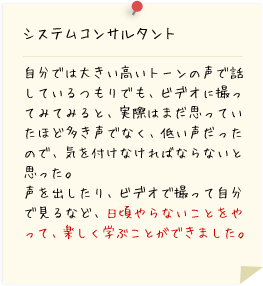 システムコンサルタント
自分では大きい高いトーンの声で話
しているつもりでも、ビデオに撮っ
てみてみると、実際はまだ思ってい
たほど多き声でなく、低い声だった
ので、気を付けなければならないと
思った。
声を出したり、ビデオで撮って自分
で見るなど、日頃やらないことをや
って、楽しく学ぶことができました。